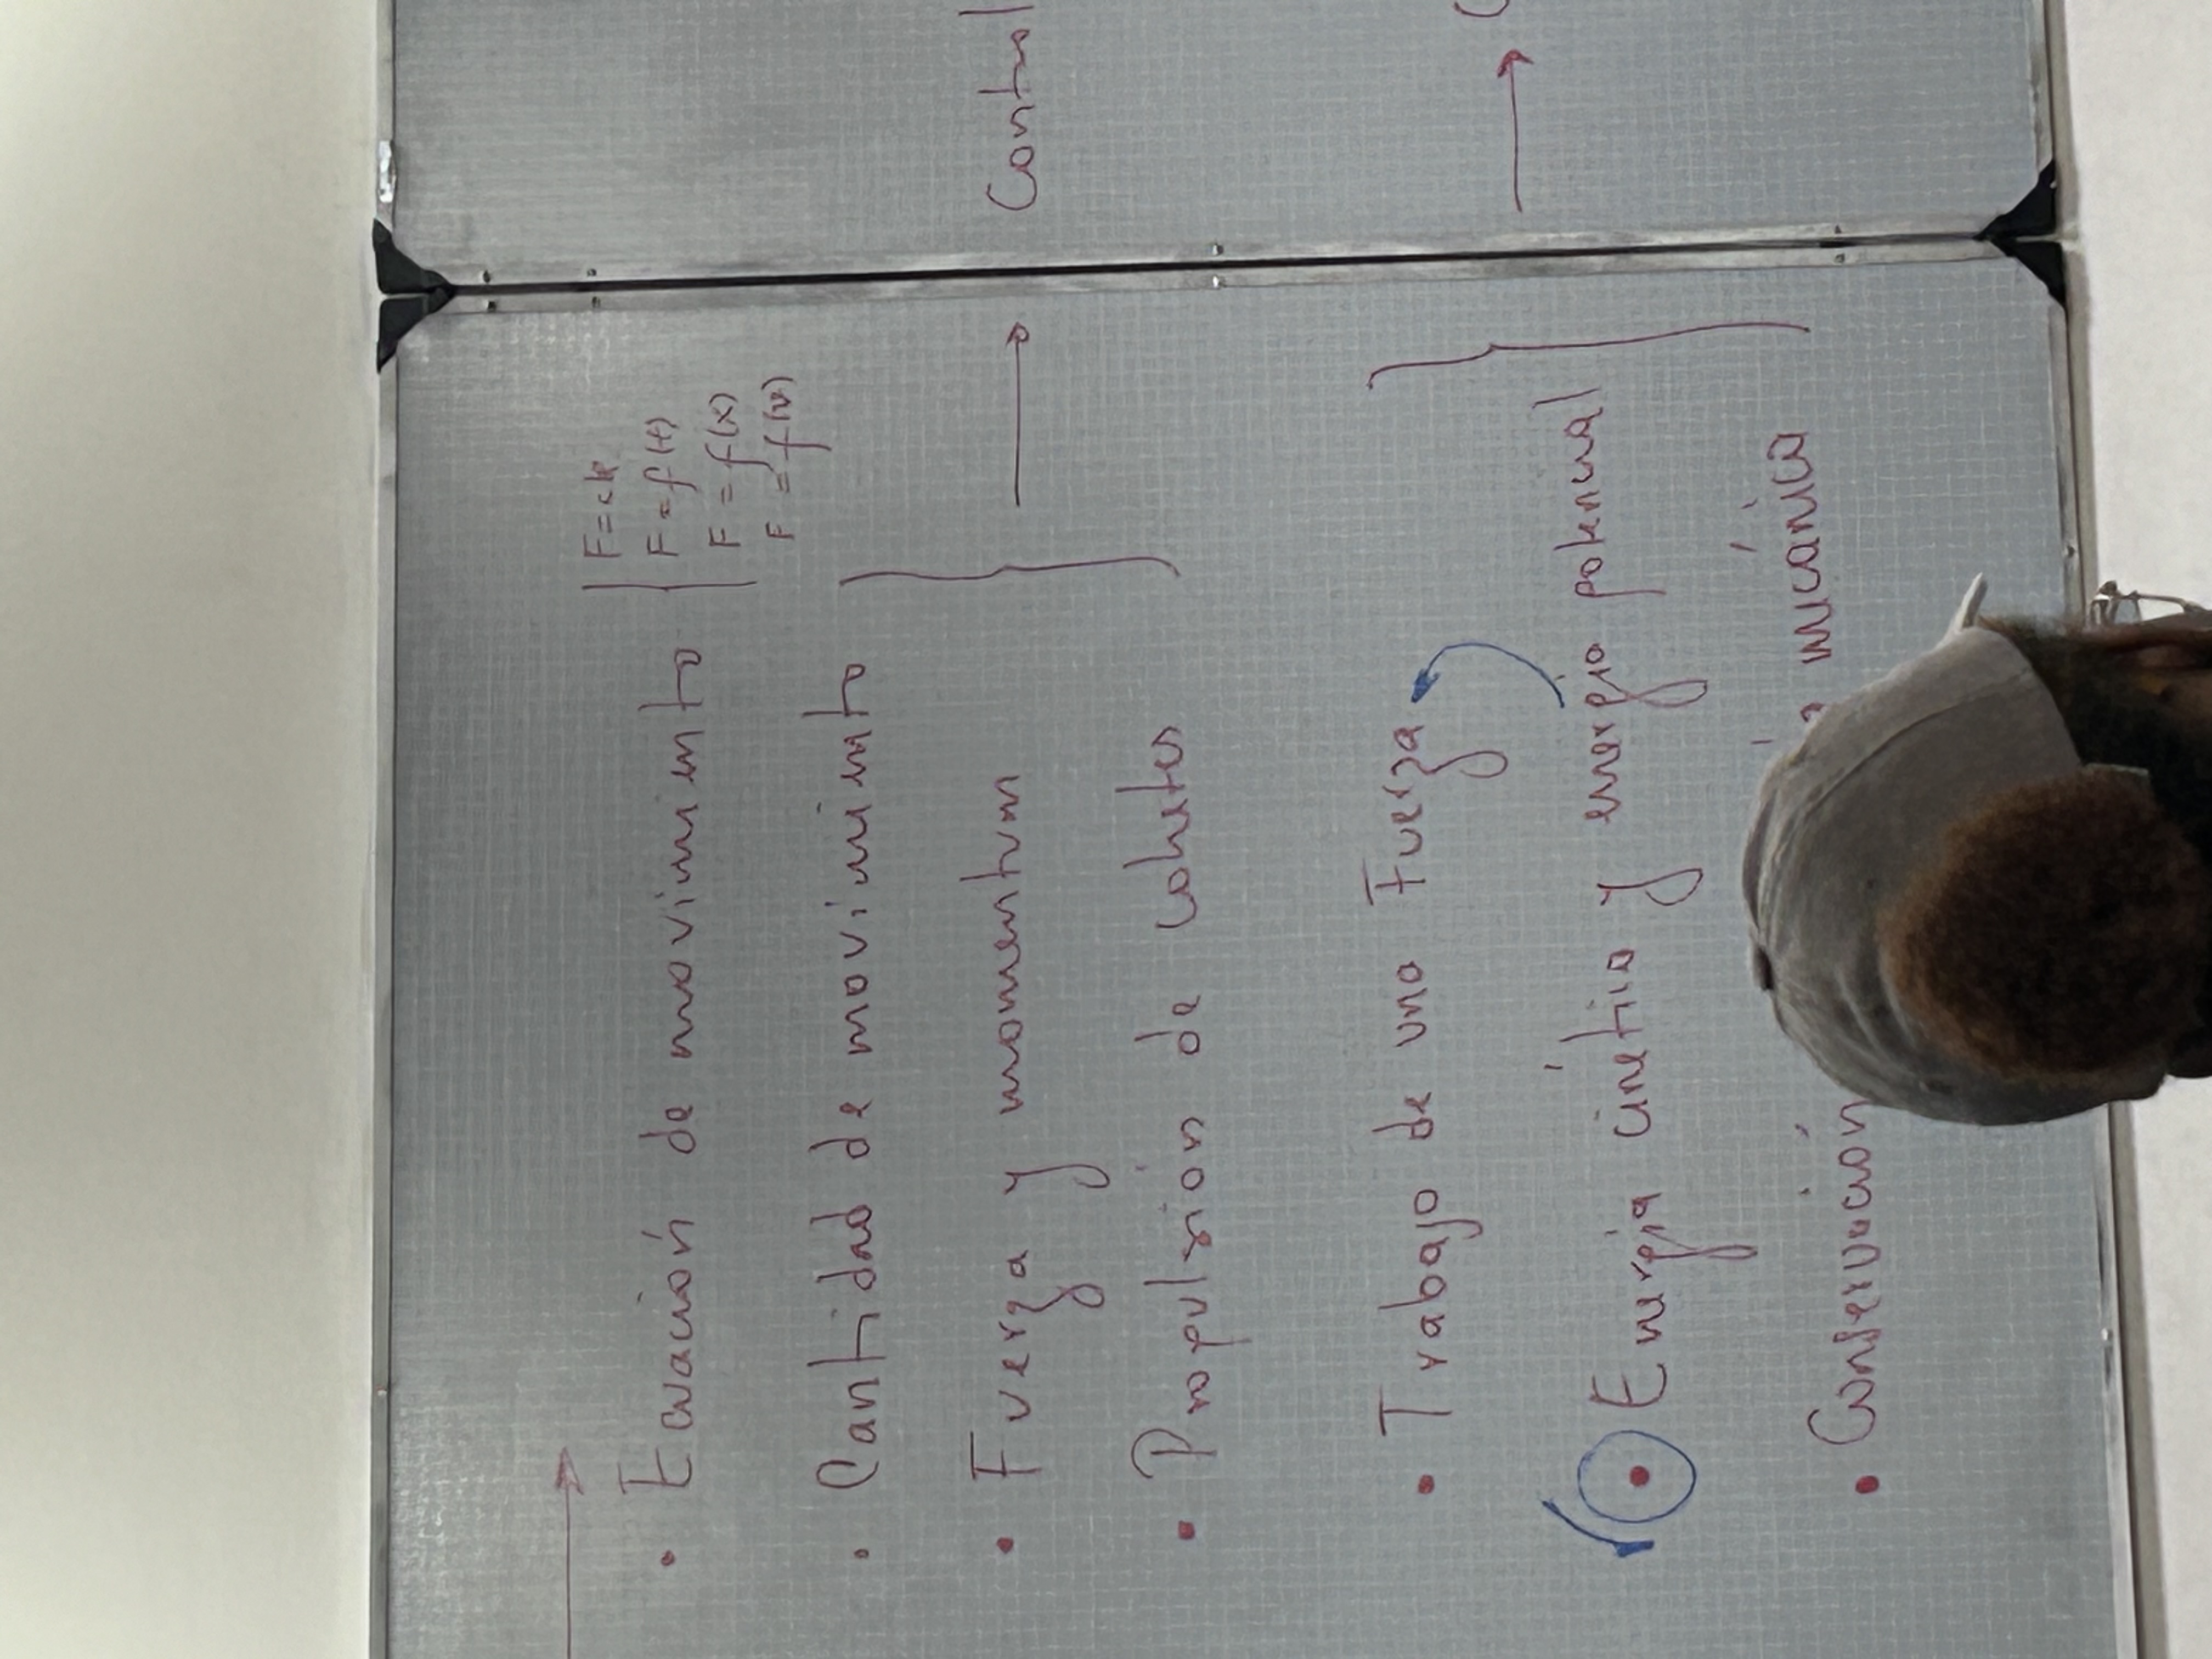 • Ecuación de movimiento
F = cte
F = f(t)
F = f(x)
F = f(v)
• Cantidad de movimiento
• Fuerza y momentum
→ Control
• Propulsión de cohetes
• Trabajo de una Fuerza
• Energía cinética y energía potencial
• Conservación mecánica